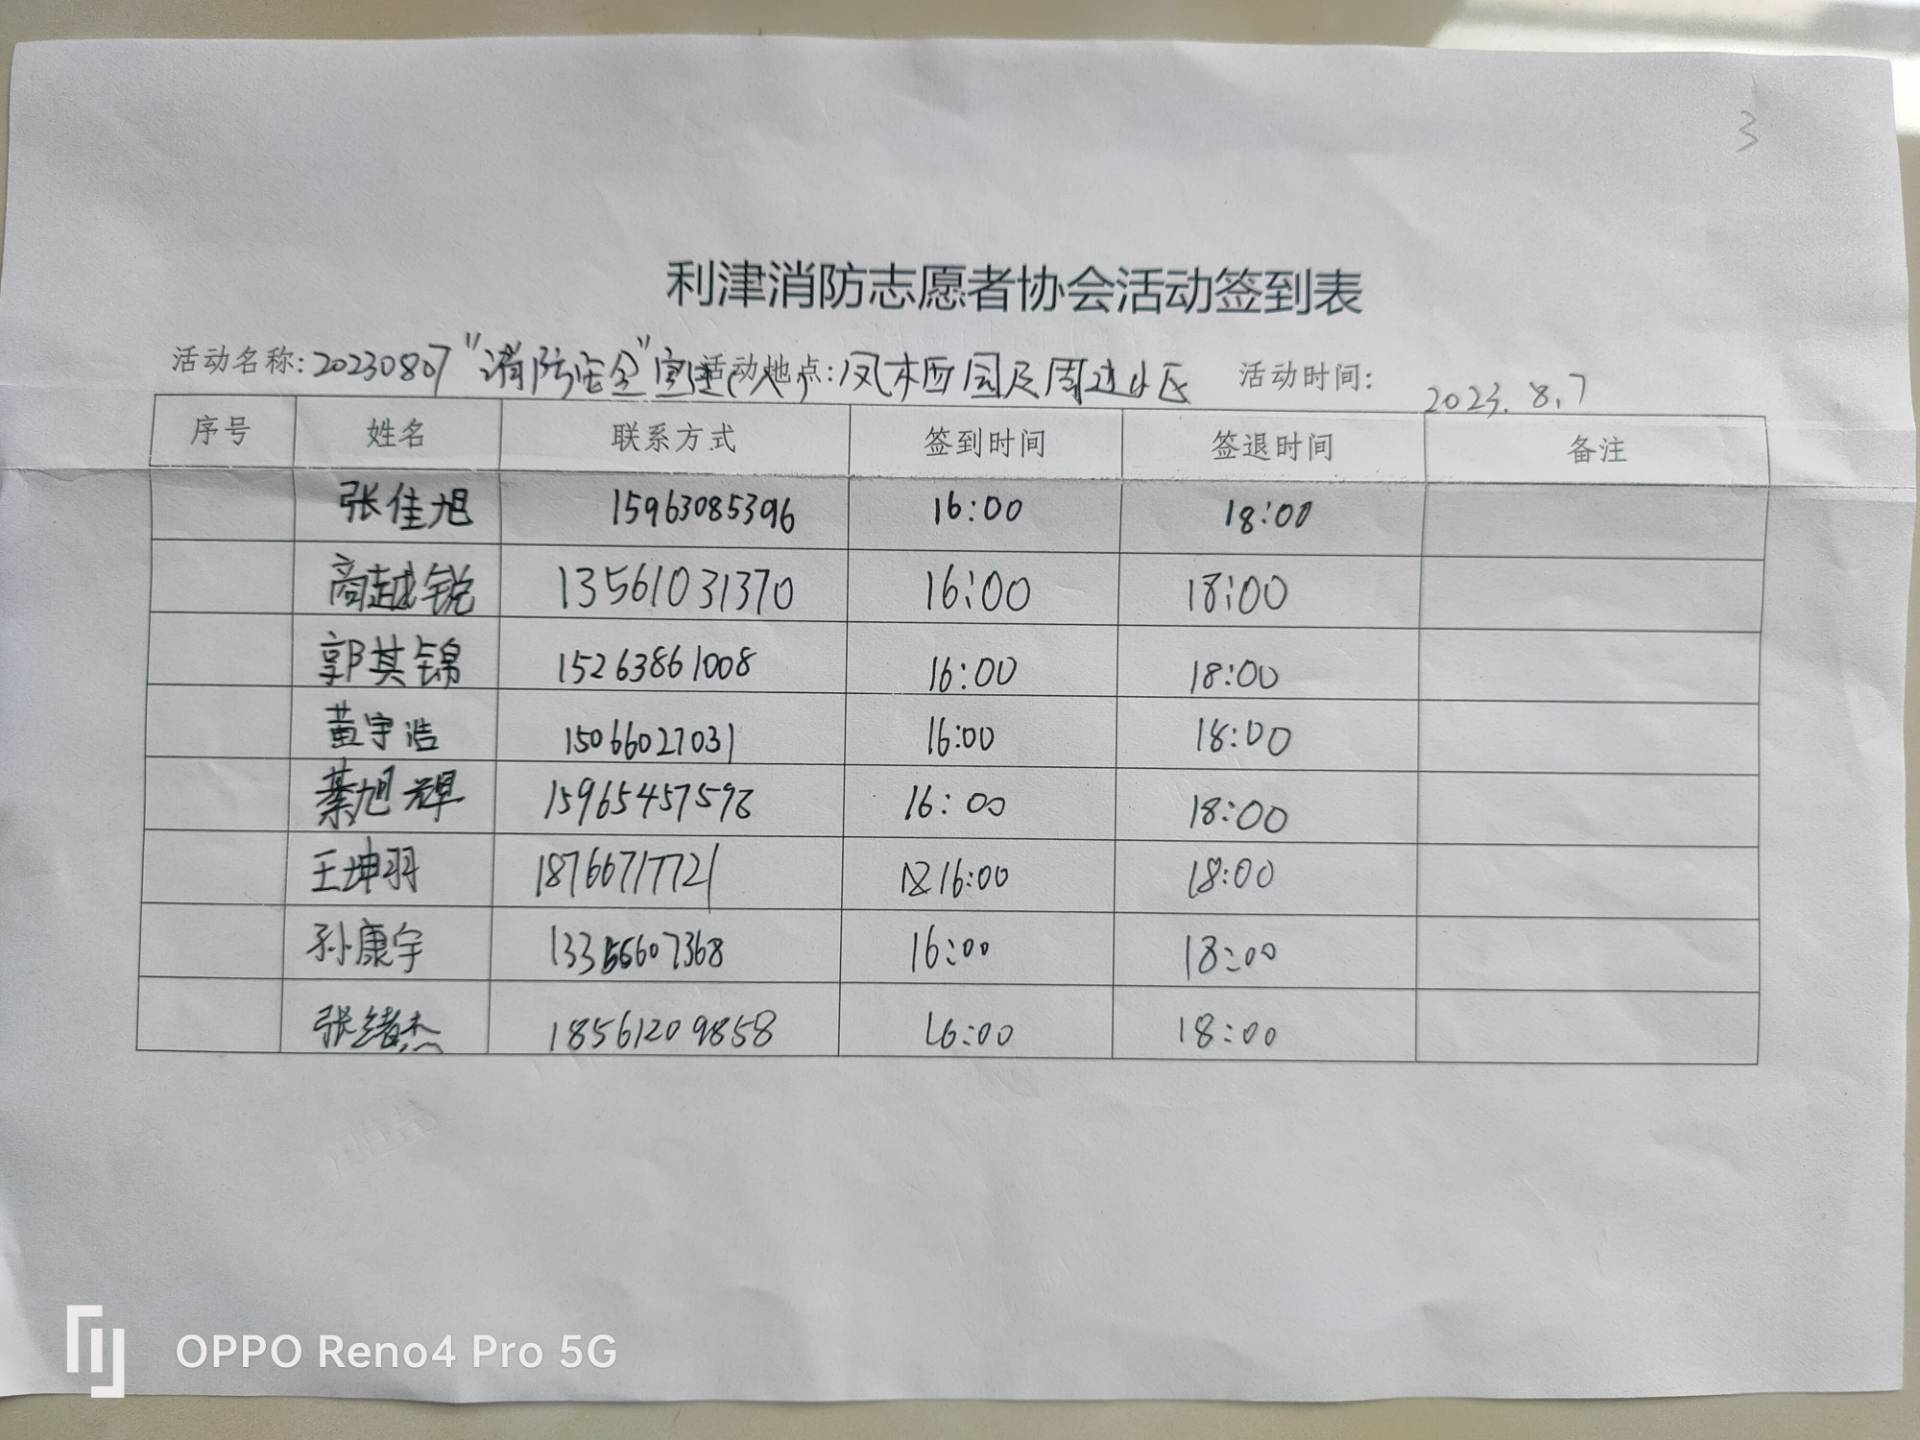 3
利津消防志愿者协会活动签到表
活动名称:20230807"消防安全"宣 活动地点:凤木西园及周边小区 活动时间: 2023.8.7
序号 姓名 联系方式 签到时间 签退时间 备注
张佳旭 15963085396 16:00 18:00
商越锐 13561031370 16:00 18:00
郭其锦 15263861008 16:00 18:00
黄宇浩 15066027031 16:00 18:00
綦旭辉 16:00 18:00
王坤羽 18766717721 16:00 18:00
孙康宇 16:00 18:00
张绪杰 18561209858 16:00 18:00
OPPO Reno4 Pro 5G